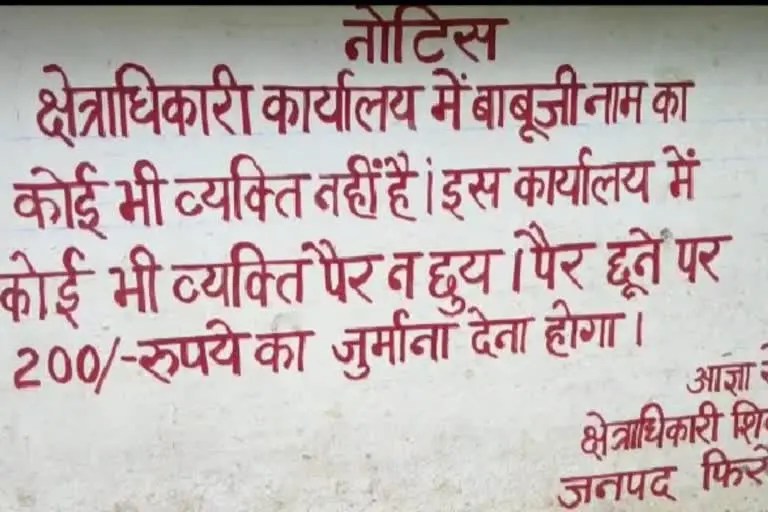 नोटिस
क्षेत्राधिकारी कार्यालय में बाबूजी नाम का
कोई भी व्यक्ति नहीं है। इस कार्यालय में
कोई भी व्यक्ति पैर न छुय । पैर छूने पर
200/-रुपये का जुर्माना देना होगा ।
आज्ञा
क्षेत्राधिकारी
जनपद